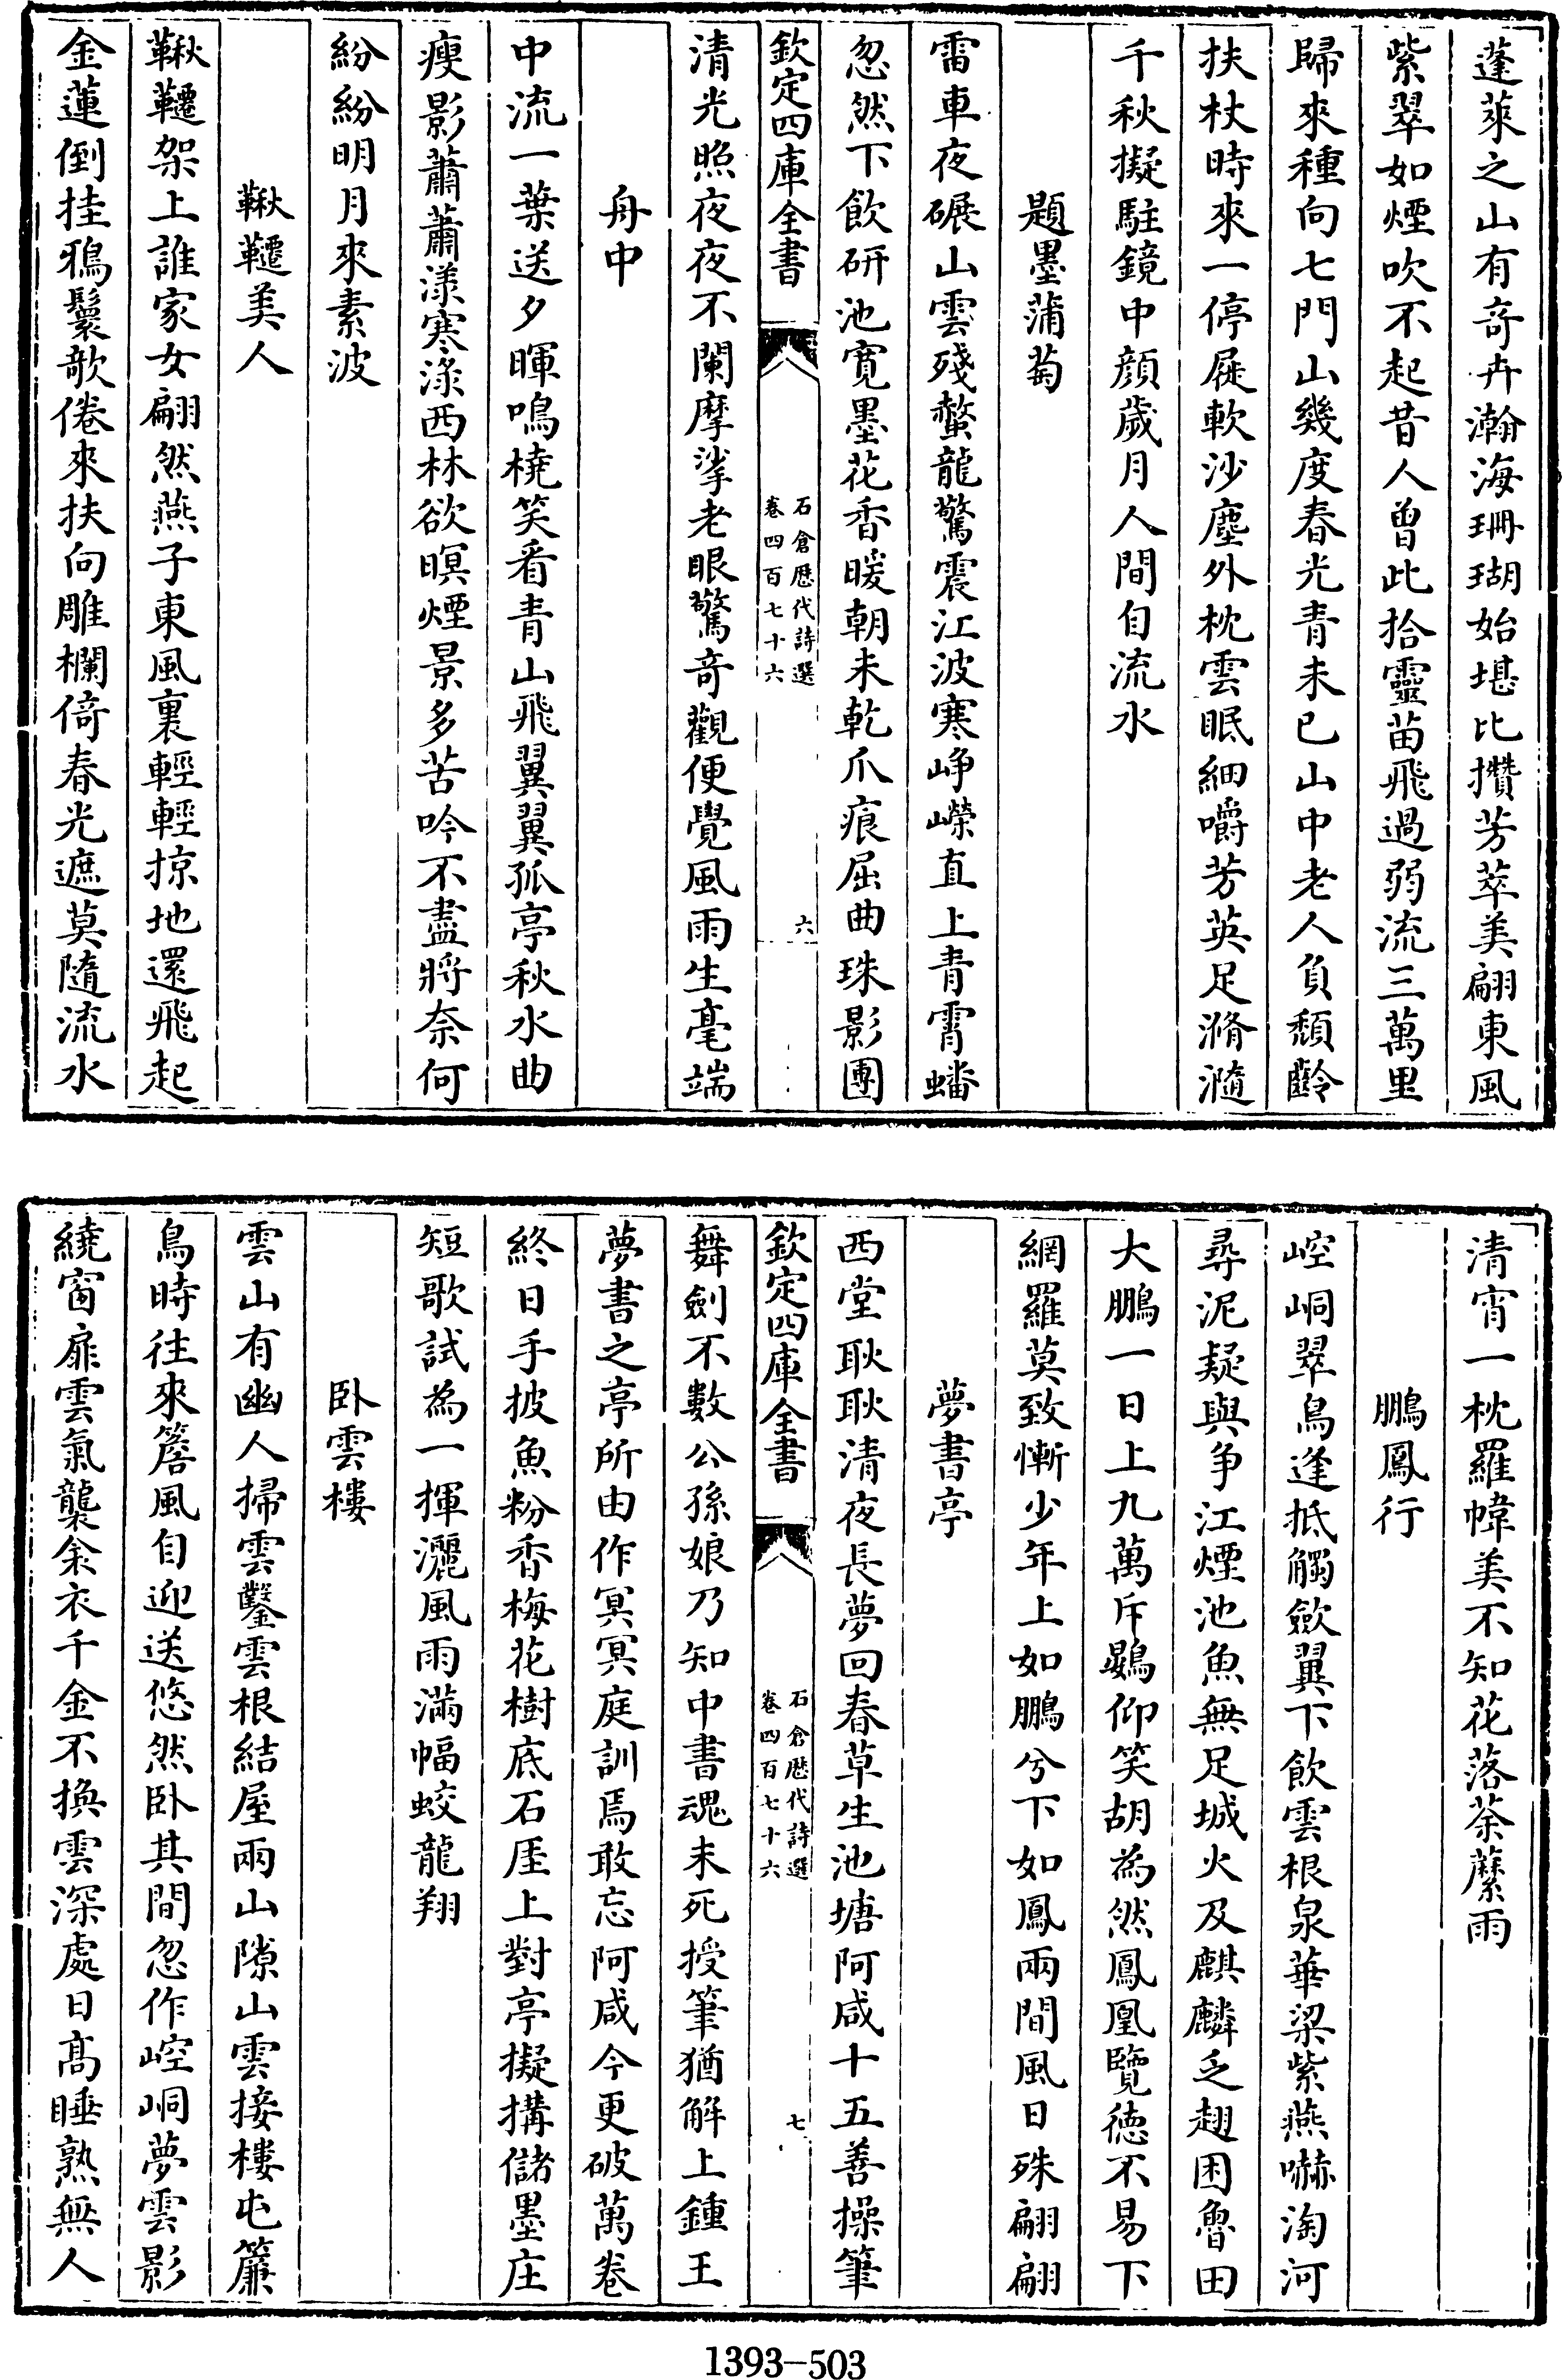 蓬萊之山有奇卉瀚海珊瑚始堪比攢芳萃美翩東風
紫翠如煙吹不起昔人曾此拾靈苗飛過弱流三萬里
歸來種向七門山幾度春光青未已山中老人負頽齡
扶杖時來一停屐軟沙塵外枕雲眠細嚼芳英足滫瀡
千秋擬駐鏡中顔歲月人間自流水
題墨蒲萄
雷車夜碾山雲殘螯龍驚震江波寒崢嶸直上青霄蟠
忽然下飲研池寛墨花香暖朝未乾爪痕屈曲珠影團
欽定四庫全書
石倉歷代詩選
卷四百七十六
六
清光照夜夜不闌摩挲老眼驚竒觀便覺風雨生毫端
舟中
中流一葉送夕暉鳴橈笑看青山飛翼翼孤亭秋水曲
瘦影蕭蕭漾寒淥西林欲暝煙景多苦吟不盡將奈何
紛紛明月來素波
鞦韆美人
鞦韆架上誰家女翩然燕子東風裏輕輕掠地還飛起
金蓮倒挂鴉鬟欹倦來扶向雕欄倚春光遮莫隨流水
清宵一枕羅幃美不知花落荼蘼雨
鵬鳳行
崆峒翠鳥逢抵觸斂翼下飲雲根泉華梁紫燕嚇淘河
尋泥疑與争江煙池魚無足城火及麒麟乏趐困魯田
大鵬一日上九萬斥鷃仰笑胡為然鳳凰覽徳不易下
網羅莫致慚少年上如鵬兮下如鳳兩間風日殊翩翩
夢書亭
西堂耿耿清夜長夢回春草生池塘阿咸十五善操筆
欽定四庫全書
石倉歷代詩選
卷四百七十六
七
舞劍不數公孫娘乃知中書魂未死授筆猶解上鍾王
夢書之亭所由作冥冥庭訓焉敢忘阿咸今更破萬卷
終日手披魚粉香梅花樹底石厓上對亭擬搆儲墨庄
短歌試為一揮灑風雨滿幅蛟龍翔
卧雲樓
雲山有幽人掃雲鑿雲根結屋兩山隙山雲接樓屯簾
鳥時往來簷風自迎送悠然卧其間忽作崆峒夢雲影
繞窗扉雲氣襲余衣千金不換雲深處日髙睡熟無人
1393-503